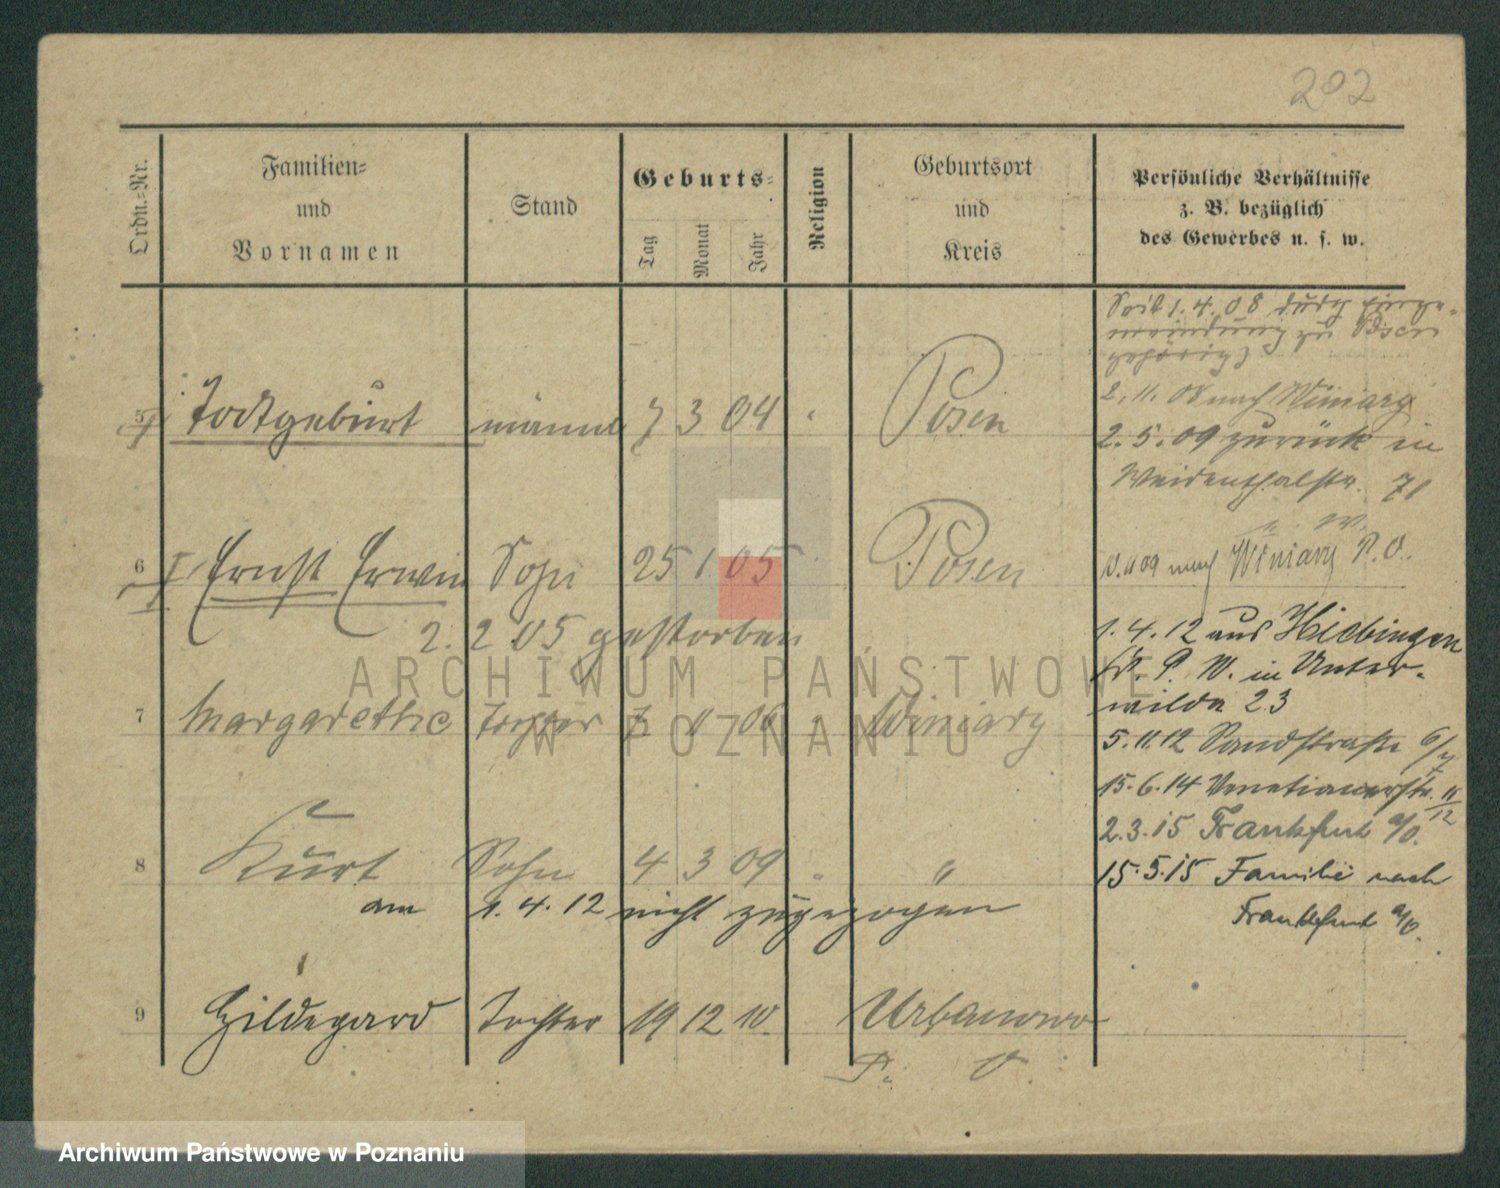 202
Ordn.-Nr.
Familien-
und
Vornamen
Stand
Geburts-
Tag
Monat
Jahr
Religion
Geburtsort
und
Kreis
Persönliche Verhältnisse
z. B. bezüglich
des Gewerbes u. s. w.
Seit 1.4.08 durch Einge-
meindung zu Posen
gehörig
5 Todtgeburt männl 7 3 04 " Posen
2.11.08 nach Winiary
2.5.09 zurück in
Weidenthalstr. 71
6 Ernst Erwin Sohn 25 1 05 Posen
2. 2 05 gestorben
nach Winiary P. O.
1.4.12 aus
P. W. in Unter-
wilda 23
7 Margarethe Tochter 7 11 06 " Winiary
5.11.12 Sandstraße 6/7
15.6.14 Venetianerstr. 11/12
2.3.15 Frankfurt a/O.
8 Kurt Sohn 4 3 09 " "
am 1.4.12 nicht zugezogen
15.5.15 Familie nach
Frankfurt a/O.
9 Hildegard Tochter 19 12 10 Urbanowo
P. O.
ARCHIWUM PAŃSTWOWE
W POZNANIU
Archiwum Państwowe w Poznaniu